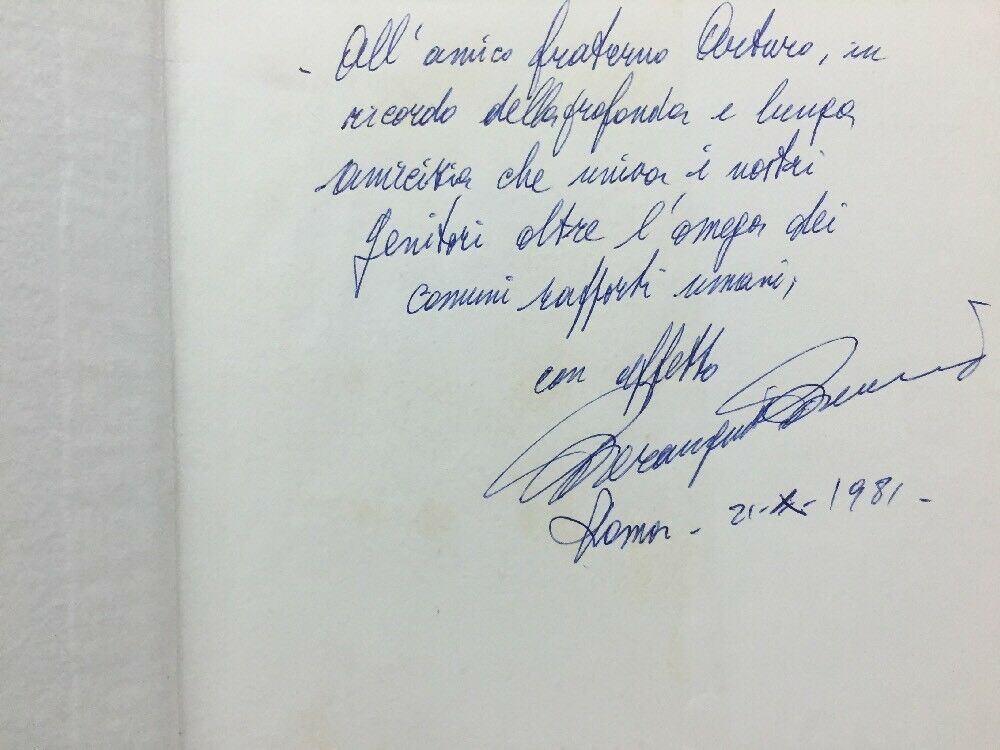 - All'amico fraterno Arturo, in
ricordo della profonda e lunga
amicizia che univa i nostri
genitori oltre l'omega dei
comuni rapporti umani,
con affetto
Roma - 21-X-1981-